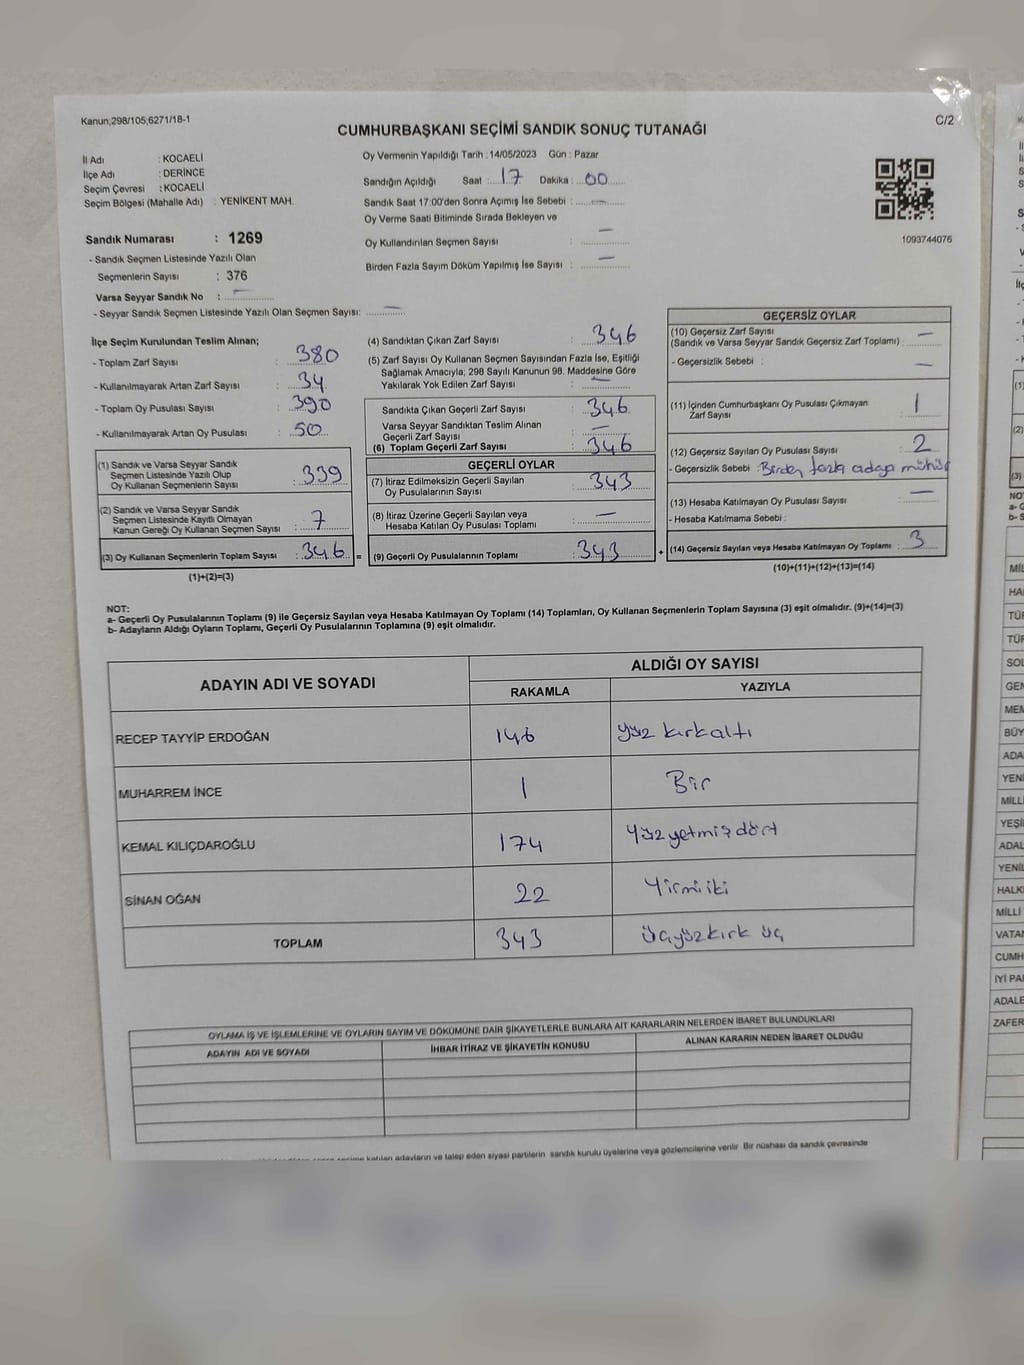 Kanun;298/105;6271/18-1
C/2
CUMHURBAŞKANI SEÇİMİ SANDIK SONUÇ TUTANAĞI
İl Adı : KOCAELİ
İlçe Adı : DERİNCE
Seçim Çevresi : KOCAELİ
Seçim Bölgesi (Mahalle Adı) : YENİKENT MAH.
Sandık Numarası : 1269
- Sandık Seçmen Listesinde Yazılı Olan
Seçmenlerin Sayısı : 376
Varsa Seyyar Sandık No : –
- Seyyar Sandık Seçmen Listesinde Yazılı Olan Seçmen Sayısı: –
Oy Vermenin Yapıldığı Tarih :14/05/2023 Gün : Pazar
Sandığın Açıldığı Saat :17 Dakika :00
Sandık Saat 17:00'den Sonra Açımış İse Sebebi : –
Oy Verme Saati Bitiminde Sırada Bekleyen ve
Oy Kullandırılan Seçmen Sayısı : –
Birden Fazla Sayım Döküm Yapılmış İse Sayısı : –
1093744076
İlçe Seçim Kurulundan Teslim Alınan;
- Toplam Zarf Sayısı : 380
- Kullanılmayarak Artan Zarf Sayısı : 34
- Toplam Oy Pusulası Sayısı : 390
- Kullanılmayarak Artan Oy Pusulası : 50
(1) Sandık ve Varsa Seyyar Sandık
Seçmen Listesinde Yazılı Olup
Oy Kullanan Seçmenlerin Sayısı : 339
(2) Sandık ve Varsa Seyyar Sandık
Seçmen Listesinde Kayıtlı Olmayan
Kanun Gereği Oy Kullanan Seçmen Sayısı : 7
(3) Oy Kullanan Seçmenlerin Toplam Sayısı : 346 =
(1)+(2)=(3)
(4) Sandıktan Çıkan Zarf Sayısı : 346
(5) Zarf Sayısı Oy Kullanan Seçmen Sayısından Fazla İse, Eşitliği
Sağlamak Amacıyla; 298 Sayılı Kanunun 98. Maddesine Göre
Yakılarak Yok Edilen Zarf Sayısı : –
Sandıkta Çıkan Geçerli Zarf Sayısı : 346
Varsa Seyyar Sandıktan Teslim Alınan
Geçerli Zarf Sayısı : –
(6) Toplam Geçerli Zarf Sayısı : 346
GEÇERLİ OYLAR
(7) İtiraz Edilmeksizin Geçerli Sayılan
Oy Pusulalarının Sayısı : 343
(8) İtiraz Üzerine Geçerli Sayılan veya
Hesaba Katılan Oy Pusulası Toplamı : –
(9) Geçerli Oy Pusulalarının Toplamı : 343 +
GEÇERSİZ OYLAR
(10) Geçersiz Zarf Sayısı
(Sandık ve Varsa Seyyar Sandık Geçersiz Zarf Toplamı) : –
- Geçersizlik Sebebi : –
(11) İçinden Cumhurbaşkanı Oy Pusulası Çıkmayan
Zarf Sayısı : 1
(12) Geçersiz Sayılan Oy Pusulası Sayısı : 2
- Geçersizlik Sebebi :Birden fazla adaya mühür
(13) Hesaba Katılmayan Oy Pusulası Sayısı : –
- Hesaba Katılmama Sebebi :
(14) Geçersiz Sayılan veya Hesaba Katılmayan Oy Toplamı : 3
(10)+(11)+(12)+(13)=(14)
NOT:
a- Geçerli Oy Pusulalarının Toplamı (9) ile Geçersiz Sayılan veya Hesaba Katılmayan Oy Toplamı (14) Toplamları, Oy Kullanan Seçmenlerin Toplam Sayısına (3) eşit olmalıdır. (9)+(14)=(3)
b- Adayların Aldığı Oyların Toplamı, Geçerli Oy Pusulalarının Toplamına (9) eşit olmalıdır.
ADAYIN ADI VE SOYADI
ALDIĞI OY SAYISI
RAKAMLA YAZIYLA
RECEP TAYYİP ERDOĞAN 146 yüz kırkaltı
MUHARREM İNCE 1 Bir
KEMAL KILIÇDAROĞLU 174 Yüzyetmişdört
SİNAN OĞAN 22 Yirmiiki
TOPLAM 343 üçyüzkırk üç
OYLAMA İŞ VE İŞLEMLERİNE VE OYLARIN SAYIM VE DÖKÜMÜNE DAİR ŞİKAYETLERLE BUNLARA AİT KARARLARIN NELERDEN İBARET BULUNDUKLARI
ADAYIN ADI VE SOYADI İHBAR İTİRAZ VE ŞİKAYETİN KONUSU ALINAN KARARIN NEDEN İBARET OLDUĞU
katılan adayların ve talep eden siyasi partilerin sandık kurulu üyelerine veya gözlemcilerine verilir. Bir nüshası da sandık çevresinde
(1)
(2)
(3)
NOT
a- G
b- S
MİL
HA
TÜR
TÜR
SOL
GEN
MEM
BÜY
ADA
YENİ
MİLLİ
YEŞİ
ADAL
YENİL
HALK
MİLLİ
VATAN
CUMH
İYİ PA
ADALE
ZAFER